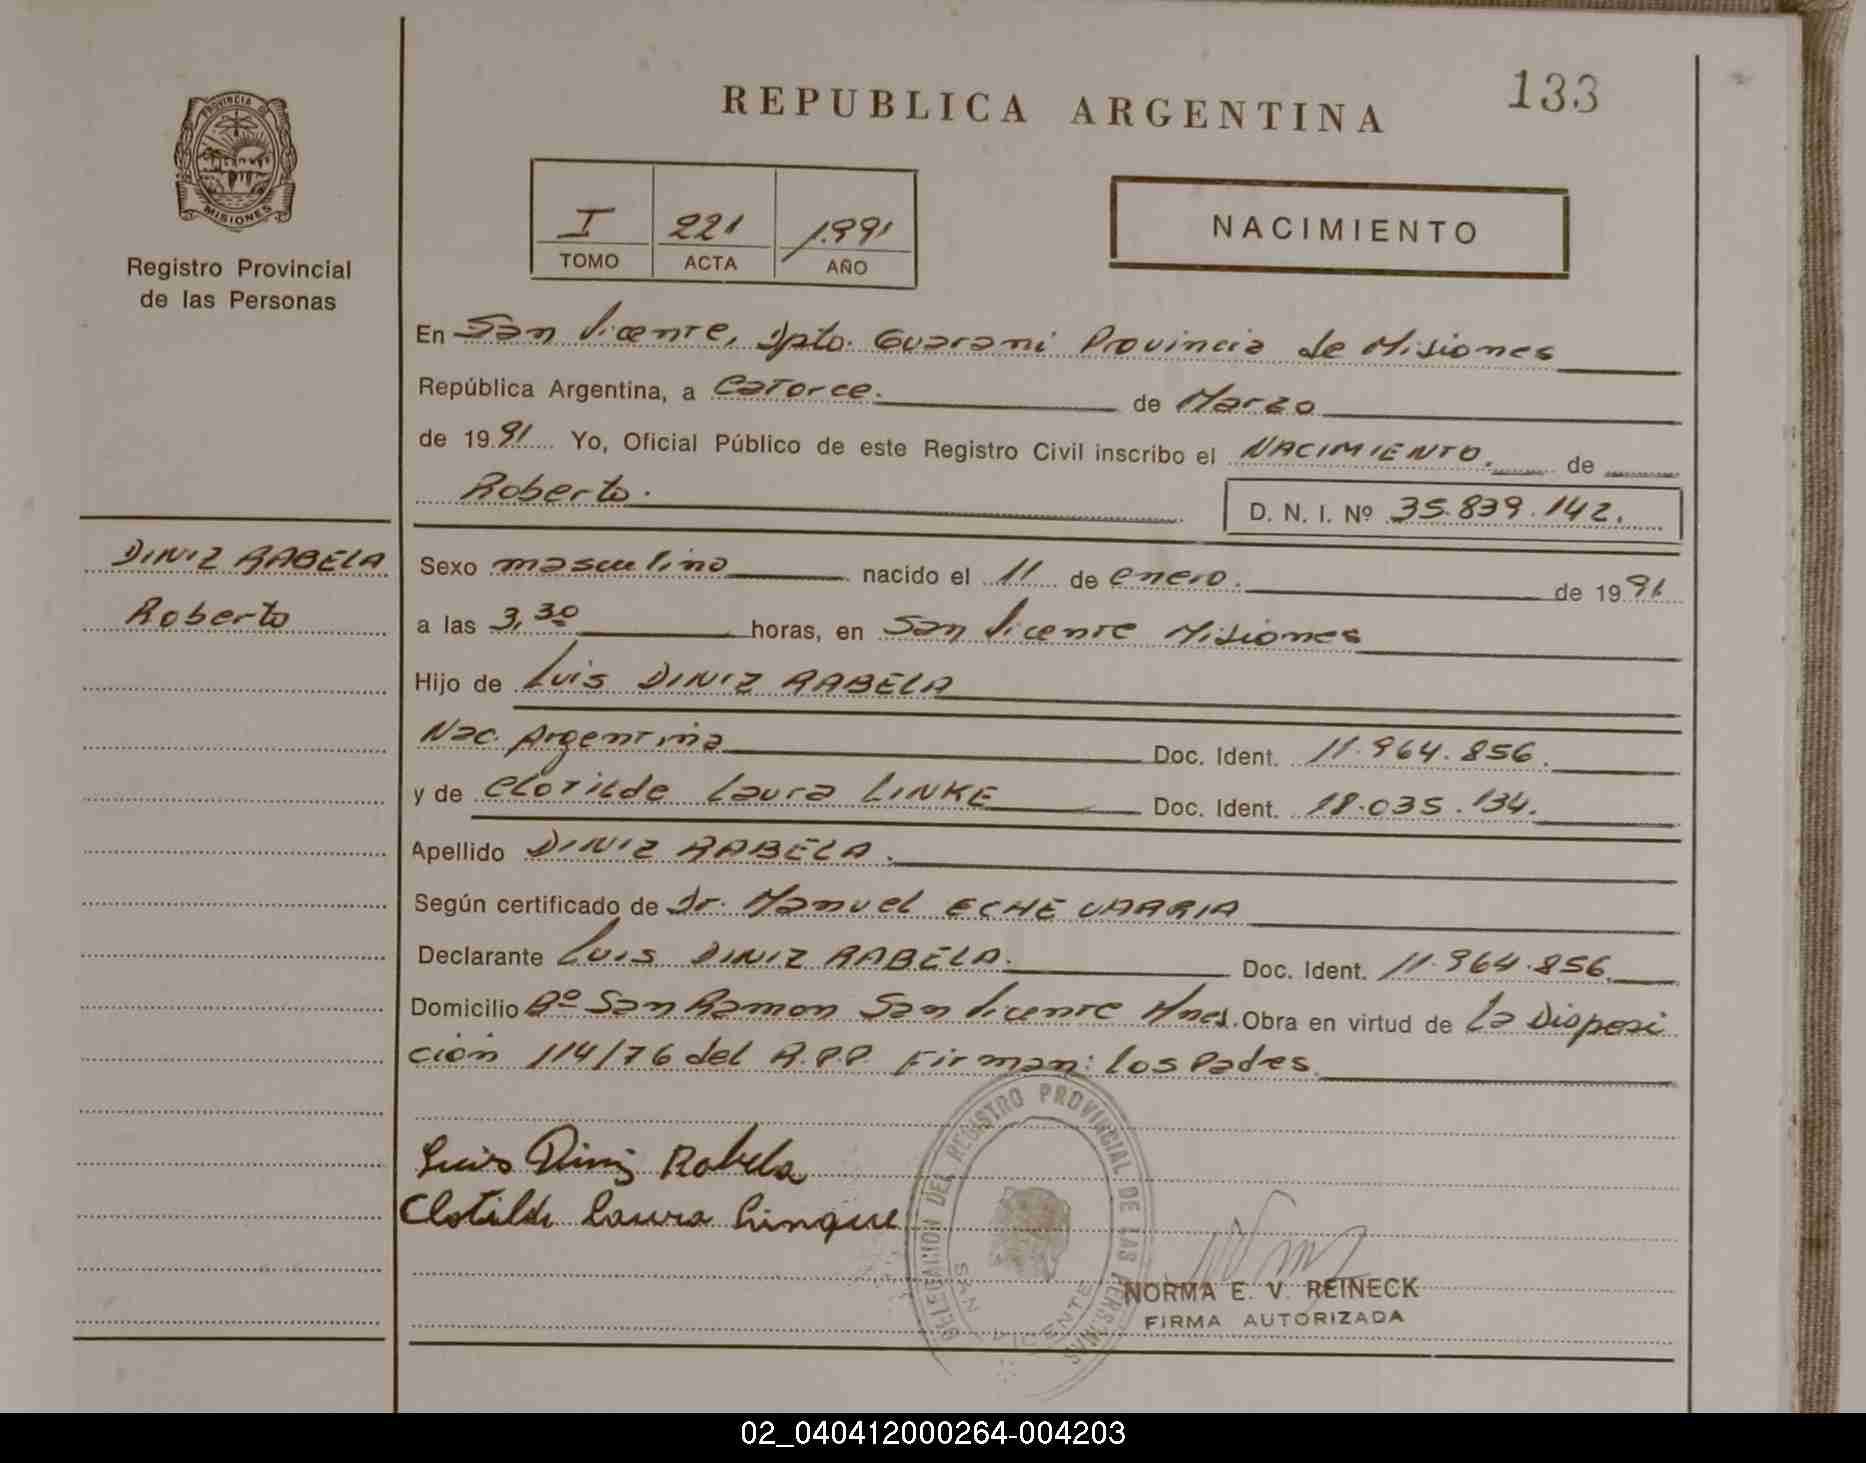 133
REPUBLICA ARGENTINA
PROVINCIA DE
MISIONES
Registro Provincial
de las Personas
I 221 1991
TOMO ACTA AÑO
NACIMIENTO
En San Vicente, Dpto. Guarani Provincia de Misiones
República Argentina, a Catorce. de Marzo
de 1991 Yo, Oficial Público de este Registro Civil inscribo el NACIMIENTO. de
Roberto.
D. N. I. Nº 35.839.142.
DINIZ RABELA
Roberto
Sexo masculino nacido el 11 de enero. de 1991
a las 3,30 horas, en San Vicente Misiones
Hijo de Luis DINIZ RABELA
Nac. Argentina Doc. Ident. 11.964.856.
y de Clotilde Laura LINKE Doc. Ident. 18.035.134.
Apellido DINIZ RABELA.
Según certificado de Dr. Manuel ECHEVARRIA
Declarante Luis DINIZ RABELA. Doc. Ident. 11.964.856.
Domicilio Bº San Ramon San Vicente Mnes. Obra en virtud de La Disposi
ción 114/76 del R.P.P. Firman: los Padres
Luis Diniz Rabela
Clotilde Laura Linque
DELEGACION DEL REGISTRO PROVINCIAL DE LAS PERSONAS
SAN VICENTE
NORMA E. V. REINECK
FIRMA AUTORIZADA
02_040412000264-004203